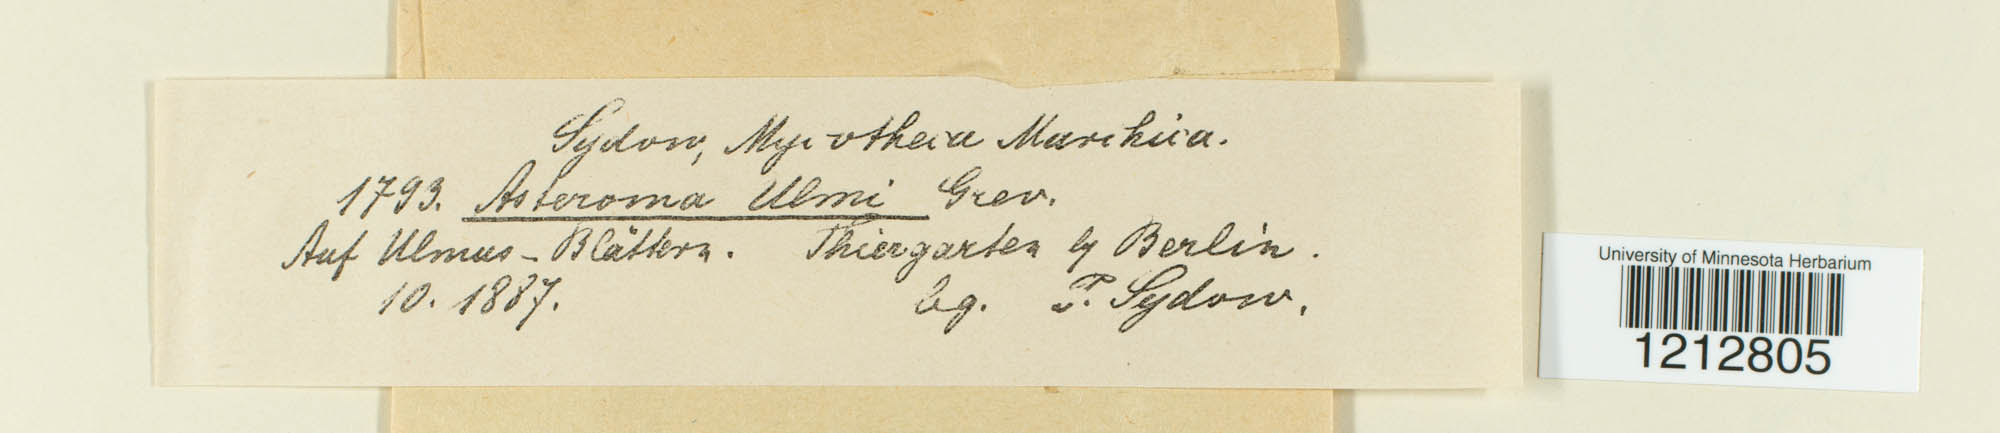 Sydow, Mycotheca Marchica.
1793. Asteroma Ulmi Grev.
Auf Ulmus-Blättern. Thiergarten b Berlin.
10. 1887. lg. P. Sydow.
University of Minnesota Herbarium
1212805